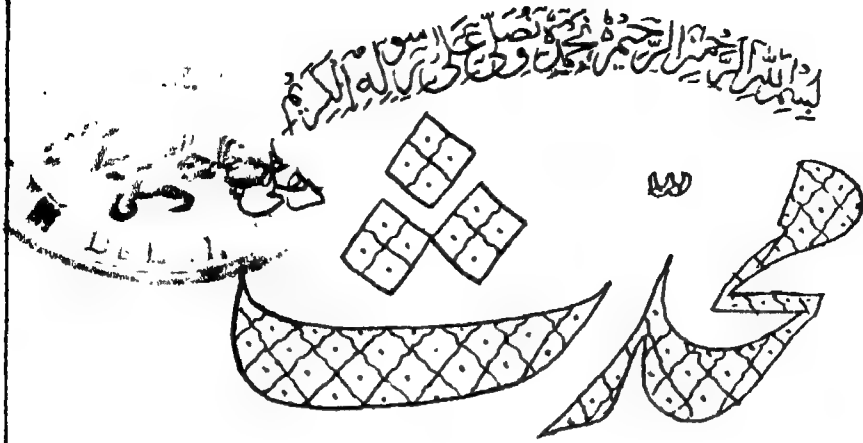 بسم الله الرحمن الرحيم نحمده ونصلى على رسوله الكريم
محدث